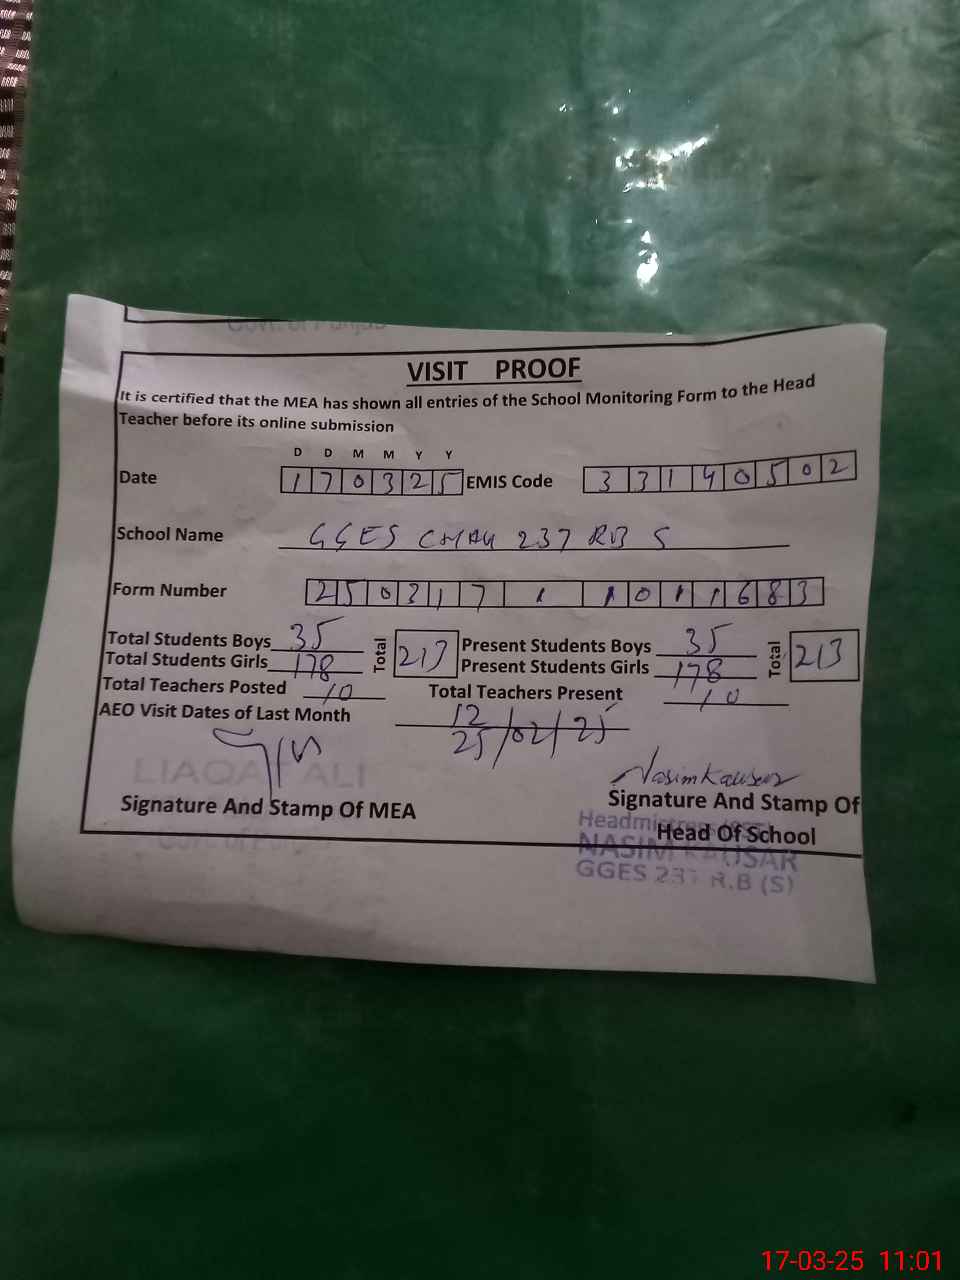 Govt. of Punjab
VISIT PROOF
It is certified that the MEA has shown all entries of the School Monitoring Form to the Head
Teacher before its online submission
D D M M Y Y
Date 170325 EMIS Code 33140502
School Name GGES CHAK 237 RB S
Form Number 250317 1 1011683
Total Students Boys 35 Total 213 Present Students Boys 35 Total 213
Total Students Girls 178 Present Students Girls 178
Total Teachers Posted 10 Total Teachers Present 10
AEO Visit Dates of Last Month 12
25/02/25
LIAQAT ALI
Nasim Kausar
Signature And Stamp Of MEA Signature And Stamp Of
Head Of School
Govt. of
Headmistress
NASIM KAUSAR
GGES 237 R.B (S)
17-03-25 11:01